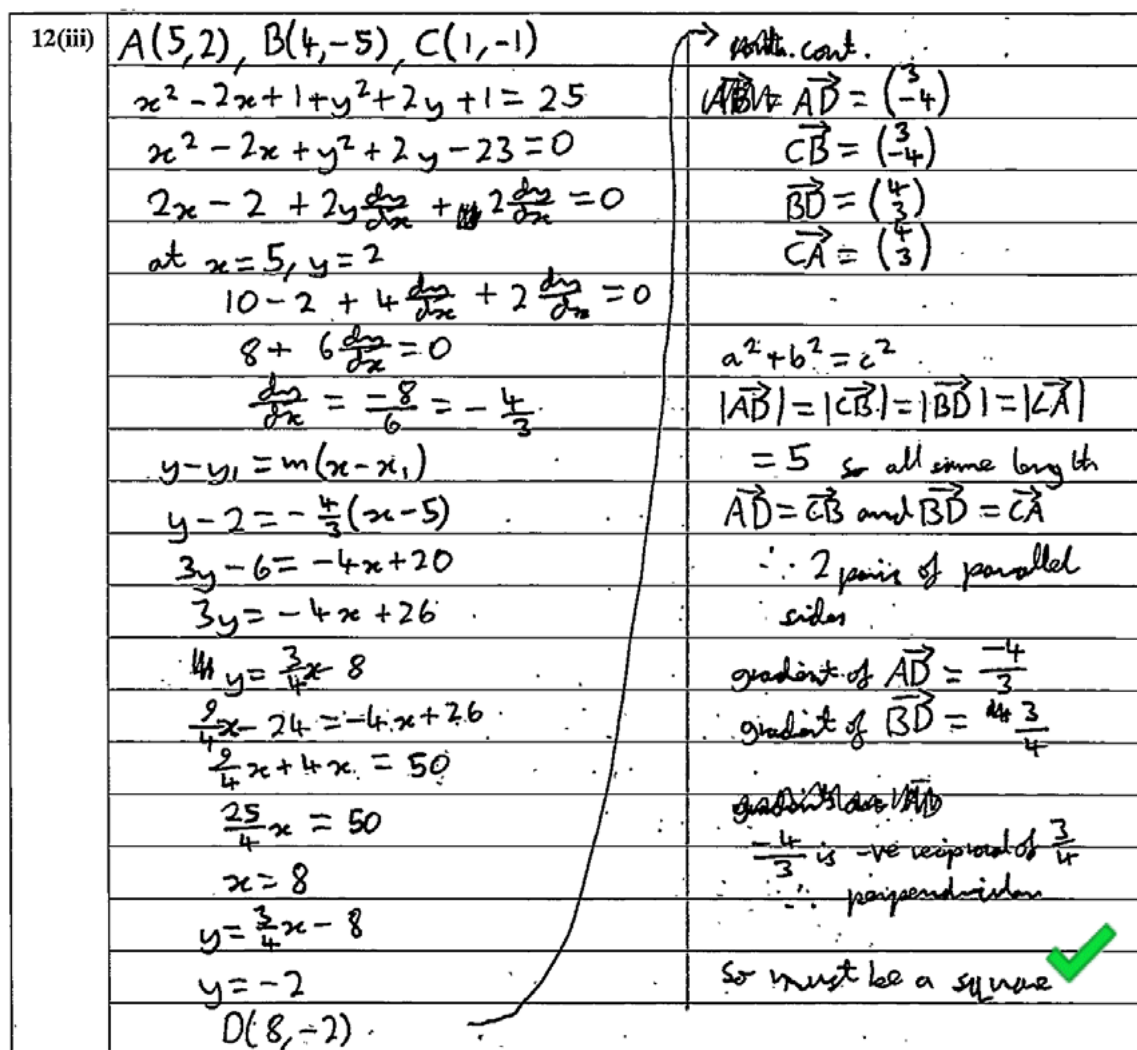 12(iii)
A(5,2), B(4,-5), C(1,-1)
x² - 2x + 1 + y² + 2y + 1 = 25
x² - 2x + y² + 2y - 23 = 0
2x - 2 + 2y dy/dx + 2 dy/dx = 0
at x = 5, y = 2
10 - 2 + 4 dy/dx + 2 dy/dx = 0
8 + 6 dy/dx = 0
dy/dx = -8/6 = -4/3
y - y₁ = m(x - x₁)
y - 2 = -4/3(x - 5)
3y - 6 = -4x + 20
3y = -4x + 26
y = 3/4x - 8
9/4x - 24 = -4x + 26
9/4x + 4x = 50
25/4x = 50
x = 8
y = 3/4x - 8
y = -2
D(8,-2)
cont.
AD→ = (3 -4)
CB→ = (3 -4)
BD→ = (4 3)
CA→ = (4 3)
a² + b² = c²
|AD→| = |CB→| = |BD→| = |CA→|
= 5 so all same length
AD→ = CB→ and BD→ = CA→
∴ 2 pairs of parallel
sides
gradient of AD→ = -4/3
gradient of BD→ = 3/4
-4/3 is -ve reciprocal of 3/4
∴ perpendicular
so must be a square